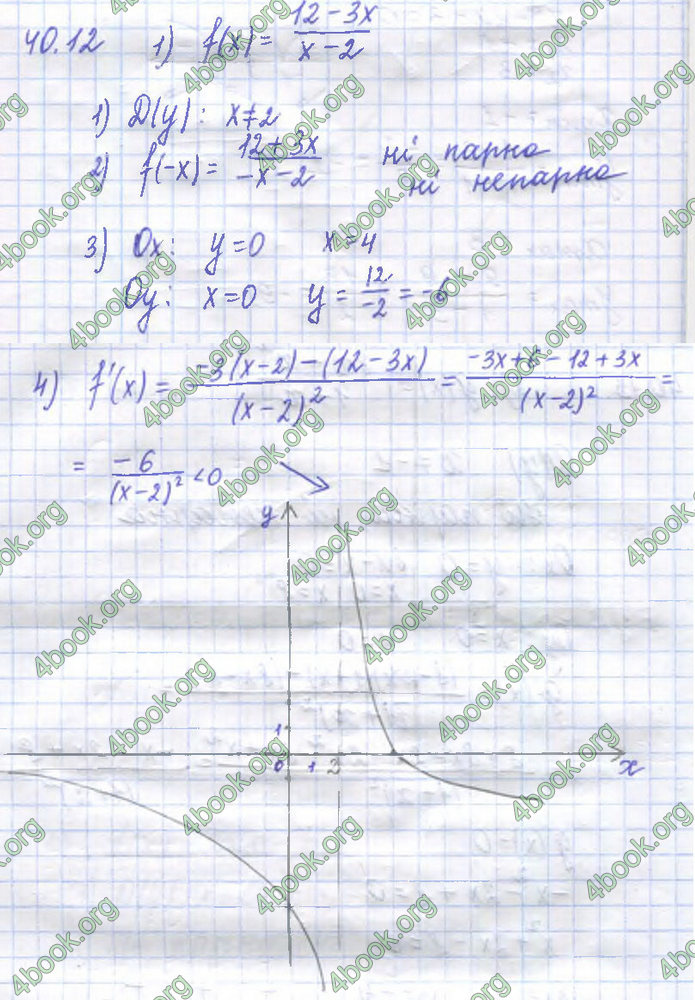 40.12 1) f(x) = (12 - 3x)/(x - 2)
1) D(y): x ≠ 2
2) f(-x) = (12 + 3x)/(-x - 2) ні парна
ні непарна
3) Ox: y = 0 x = 4
Oy: x = 0 y = 12/-2 = -6
4) f'(x) = (-3(x-2) - (12 - 3x))/(x-2)² = (-3x + 6 - 12 + 3x)/(x-2)² =
= -6/(x-2)² < 0
y
1
0 1 2 x
4book.org